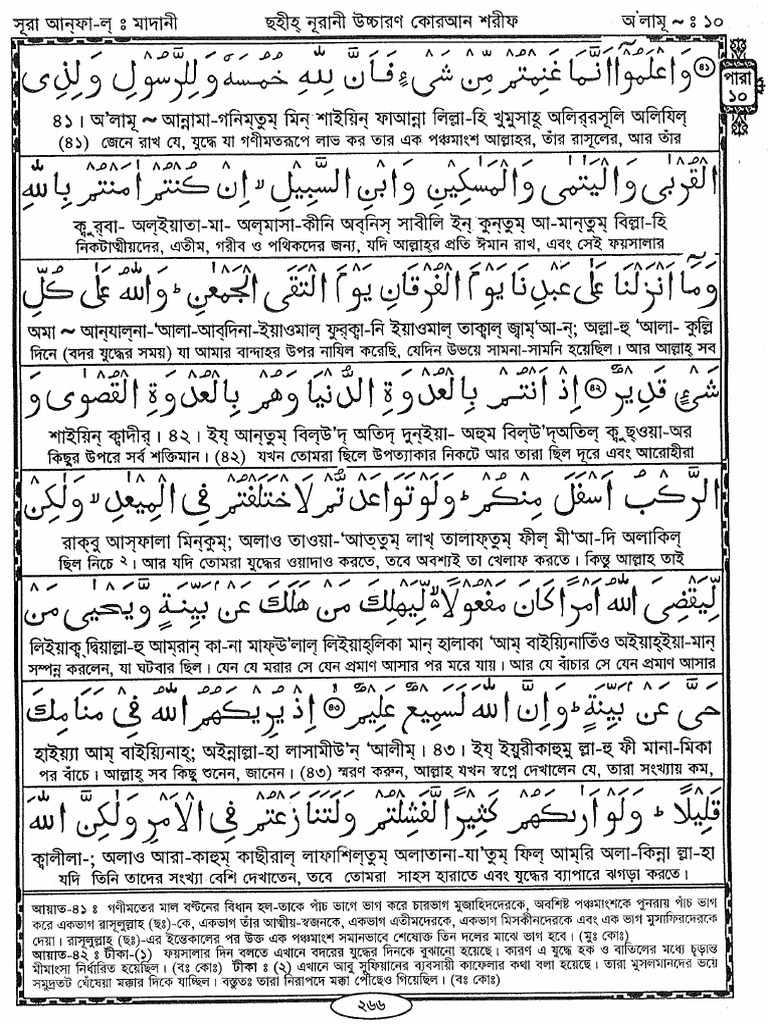 সূরা আন্‌ফা-ল্ ঃ মাদানী
ছহীহ্ নূরানী উচ্চারণ কোরআন শরীফ
অ'লামূ ~ ঃ ১০
পারা
১০
﴿٤١﴾ وَاعْلَمُوْٓا اَنَّمَا غَنِمْتُمْ مِّنْ شَيْءٍ فَاَنَّ لِلّٰهِ خُمُسَهٗ وَلِلرَّسُوْلِ وَلِذِى
৪১। অ'লামূ ~ আন্নামা-গনিম্‌তুম্ মিন্ শাইয়িন্ ফাআন্না লিল্লা-হি খুমুসাহূ অলির্‌রসূলি অলিযিল্
(৪১) জেনে রাখ যে, যুদ্ধে যা গণীমতরূপে লাভ কর তার এক পঞ্চমাংশ আল্লাহর, তাঁর রাসূলের, আর তাঁর
الْقُرْبٰى وَالْيَتٰمٰى وَالْمَسٰكِيْنِ وَابْنِ السَّبِيْلِ ۙ اِنْ كُنْتُمْ اٰمَنْتُمْ بِاللّٰهِ
ক্বুর্‌বা- অল্‌ইয়াতা-মা- অল্‌মাসা-কীনি অব্‌নিস্ সাবীলি ইন্ কুন্‌তুম্ আ-মান্‌তুম্ বিল্লা-হি
নিকটাত্মীয়দের, এতীম, গরীব ও পথিকদের জন্য, যদি আল্লাহ্‌র প্রতি ঈমান রাখ, এবং সেই ফয়সালার
وَمَآ اَنْزَلْنَا عَلٰى عَبْدِنَا يَوْمَ الْفُرْقَانِ يَوْمَ الْتَقَى الْجَمْعٰنِ ؕ وَاللّٰهُ عَلٰى كُلِّ
অমা ~ আন্‌যাল্‌না-'আলা-আব্‌দিনা-ইয়াওমাল্ ফুর্‌ক্বা-নি ইয়াওমাল্ তাক্বাল্ জ্বাম্'আ-ন্; অল্লা-হু 'আলা- কুল্লি
দিনে (বদর যুদ্ধের সময়) যা আমার বান্দাহর উপর নাযিল করেছি, যেদিন উভয়ে সামনা-সামনি হয়েছিল। আর আল্লাহ্ সব
شَيْءٍ قَدِيْرٌ ﴿٤٢﴾ اِذْ اَنْتُمْ بِالْعُدْوَةِ الدُّنْيَا وَهُمْ بِالْعُدْوَةِ الْقُصْوٰى وَ
শাইয়িন্ ক্বাদীর্। ৪২। ইয্ আন্‌তুম্ বিল্‌উ'দ্ অতিদ্ দুন্‌ইয়া- অহুম বিল্‌উ'দ্‌অতিল্ ক্বুছ্ওয়া-অর
কিছুর উপরে সর্ব শক্তিমান। (৪২) যখন তোমরা ছিলে উপত্যাকার নিকটে আর তারা ছিল দূরে এবং আরোহীরা
الرَّكْبُ اَسْفَلَ مِنْكُمْ ؕ وَلَوْ تَوَاعَدْتُّمْ لَاخْتَلَفْتُمْ فِى الْمِيْعٰدِ ۙ وَلٰكِنْ
রাক্‌বু আস্‌ফালা মিন্‌কুম্; অলাও তাওয়া-'আত্‌তুম্ লাখ্ তালাফ্‌তুম্ ফীল্ মী'আ-দি অলাকিল্
ছিল নিচে ২। আর যদি তোমরা যুদ্ধের ওয়াদাও করতে, তবে অবশ্যই তা খেলাফ করতে। কিন্তু আল্লাহ তাই
لِّيَقْضِىَ اللّٰهُ اَمْرًا كَانَ مَفْعُوْلًا ۙ لِّيَهْلِكَ مَنْ هَلَكَ عَنْۢ بَيِّنَةٍ وَّيَحْيٰى مَنْ
লিইয়াক্ব্‌দ্বিয়াল্লা-হু আম্‌রান্ কা-না মাফ্‌উ'লাল্ লিইয়াহ্‌লিকা মান্ হালাকা 'আম্ বাইয়্যিনাতিঁও অইয়াহ্‌ইয়া-মান্
সম্পন্ন করলেন, যা ঘটবার ছিল। যেন যে মরার সে যেন প্রমাণ আসার পর মরে যায়। আর যে বাঁচার সে যেন প্রমাণ আসার
حَىَّ عَنْۢ بَيِّنَةٍ ؕ وَاِنَّ اللّٰهَ لَسَمِيْعٌ عَلِيْمٌ ﴿٤٣﴾ اِذْ يُرِيْكَهُمُ اللّٰهُ فِىْ مَنَامِكَ
হাইয়্যা আম্ বাইয়্যিনাহ্; অইন্নাল্লা-হা লাসামীউ'ন্ 'আলীম্। ৪৩। ইয্ ইয়ুরীকাহুমু ল্লা-হু ফী মানা-মিকা
পর বাঁচে। আল্লাহ্ সব কিছু শুনেন, জানেন। (৪৩) স্মরণ করুন, আল্লাহ যখন স্বপ্নে দেখালেন যে, তারা সংখ্যায় কম,
قَلِيْلًا ؕ وَلَوْ اَرٰىكَهُمْ كَثِيْرًا لَّفَشِلْتُمْ وَلَتَنَازَعْتُمْ فِى الْاَمْرِ وَلٰكِنَّ اللّٰهَ
ক্বালীলা-; অলাও আরা-কাহুম্ কাছীরাল্ লাফাশিল্‌তুম্ অলাতানা-যা'তুম্ ফিল্ আম্‌রি অলা-কিন্না ল্লা-হা
যদি তিনি তাদের সংখ্যা বেশি দেখাতেন, তবে তোমরা সাহস হারাতে এবং যুদ্ধের ব্যাপারে ঝগড়া করতে।
আয়াত-৪১ ঃ গণীমতের মাল বণ্টনের বিধান হল-তাকে পাঁচ ভাগে ভাগ করে চারভাগ মুজাহিদদেরকে, অবশিষ্ট পঞ্চমাংশকে পুনরায় পাঁচ ভাগ
করে একভাগ রাসূলুল্লাহ্ (ছঃ)-কে, একভাগ তাঁর আত্মীয়-স্বজনকে, একভাগ এতীমদেরকে, একভাগ মিসকীনদেরকে এবং এক ভাগ মুসাফিরদেরকে
দেয়া। রাসূলুল্লাহ্ (ছঃ)-এর ইন্তেকালের পর উক্ত এক পঞ্চমাংশ সমানভাবে শেষোক্ত তিন দলের মাঝে ভাগ হবে। (মুঃ কোঃ)
আয়াত-৪২ ঃ টীকা-(১) ফয়সালার দিন বলতে এখানে বদরের যুদ্ধের দিনকে বুঝানো হয়েছে। কারণ এ যুদ্ধে হক ও বাতিলের মধ্যে চূড়ান্ত
মীমাংসা নির্ধারিত হয়েছিল। (বঃ কোঃ) টীকা ঃ (২) এখানে আবু সুফিয়ানের ব্যবসায়ী কাফেলার কথা বলা হয়েছে। তারা মুসলমানদের ভয়ে
সমুদ্রতট ঘেঁষেয়া মক্কার দিকে যাচ্ছিল। বস্তুতঃ তারা নিরাপদে মক্কা পৌঁছেও গিয়েছিল। (বঃ কোঃ)
২৬৬